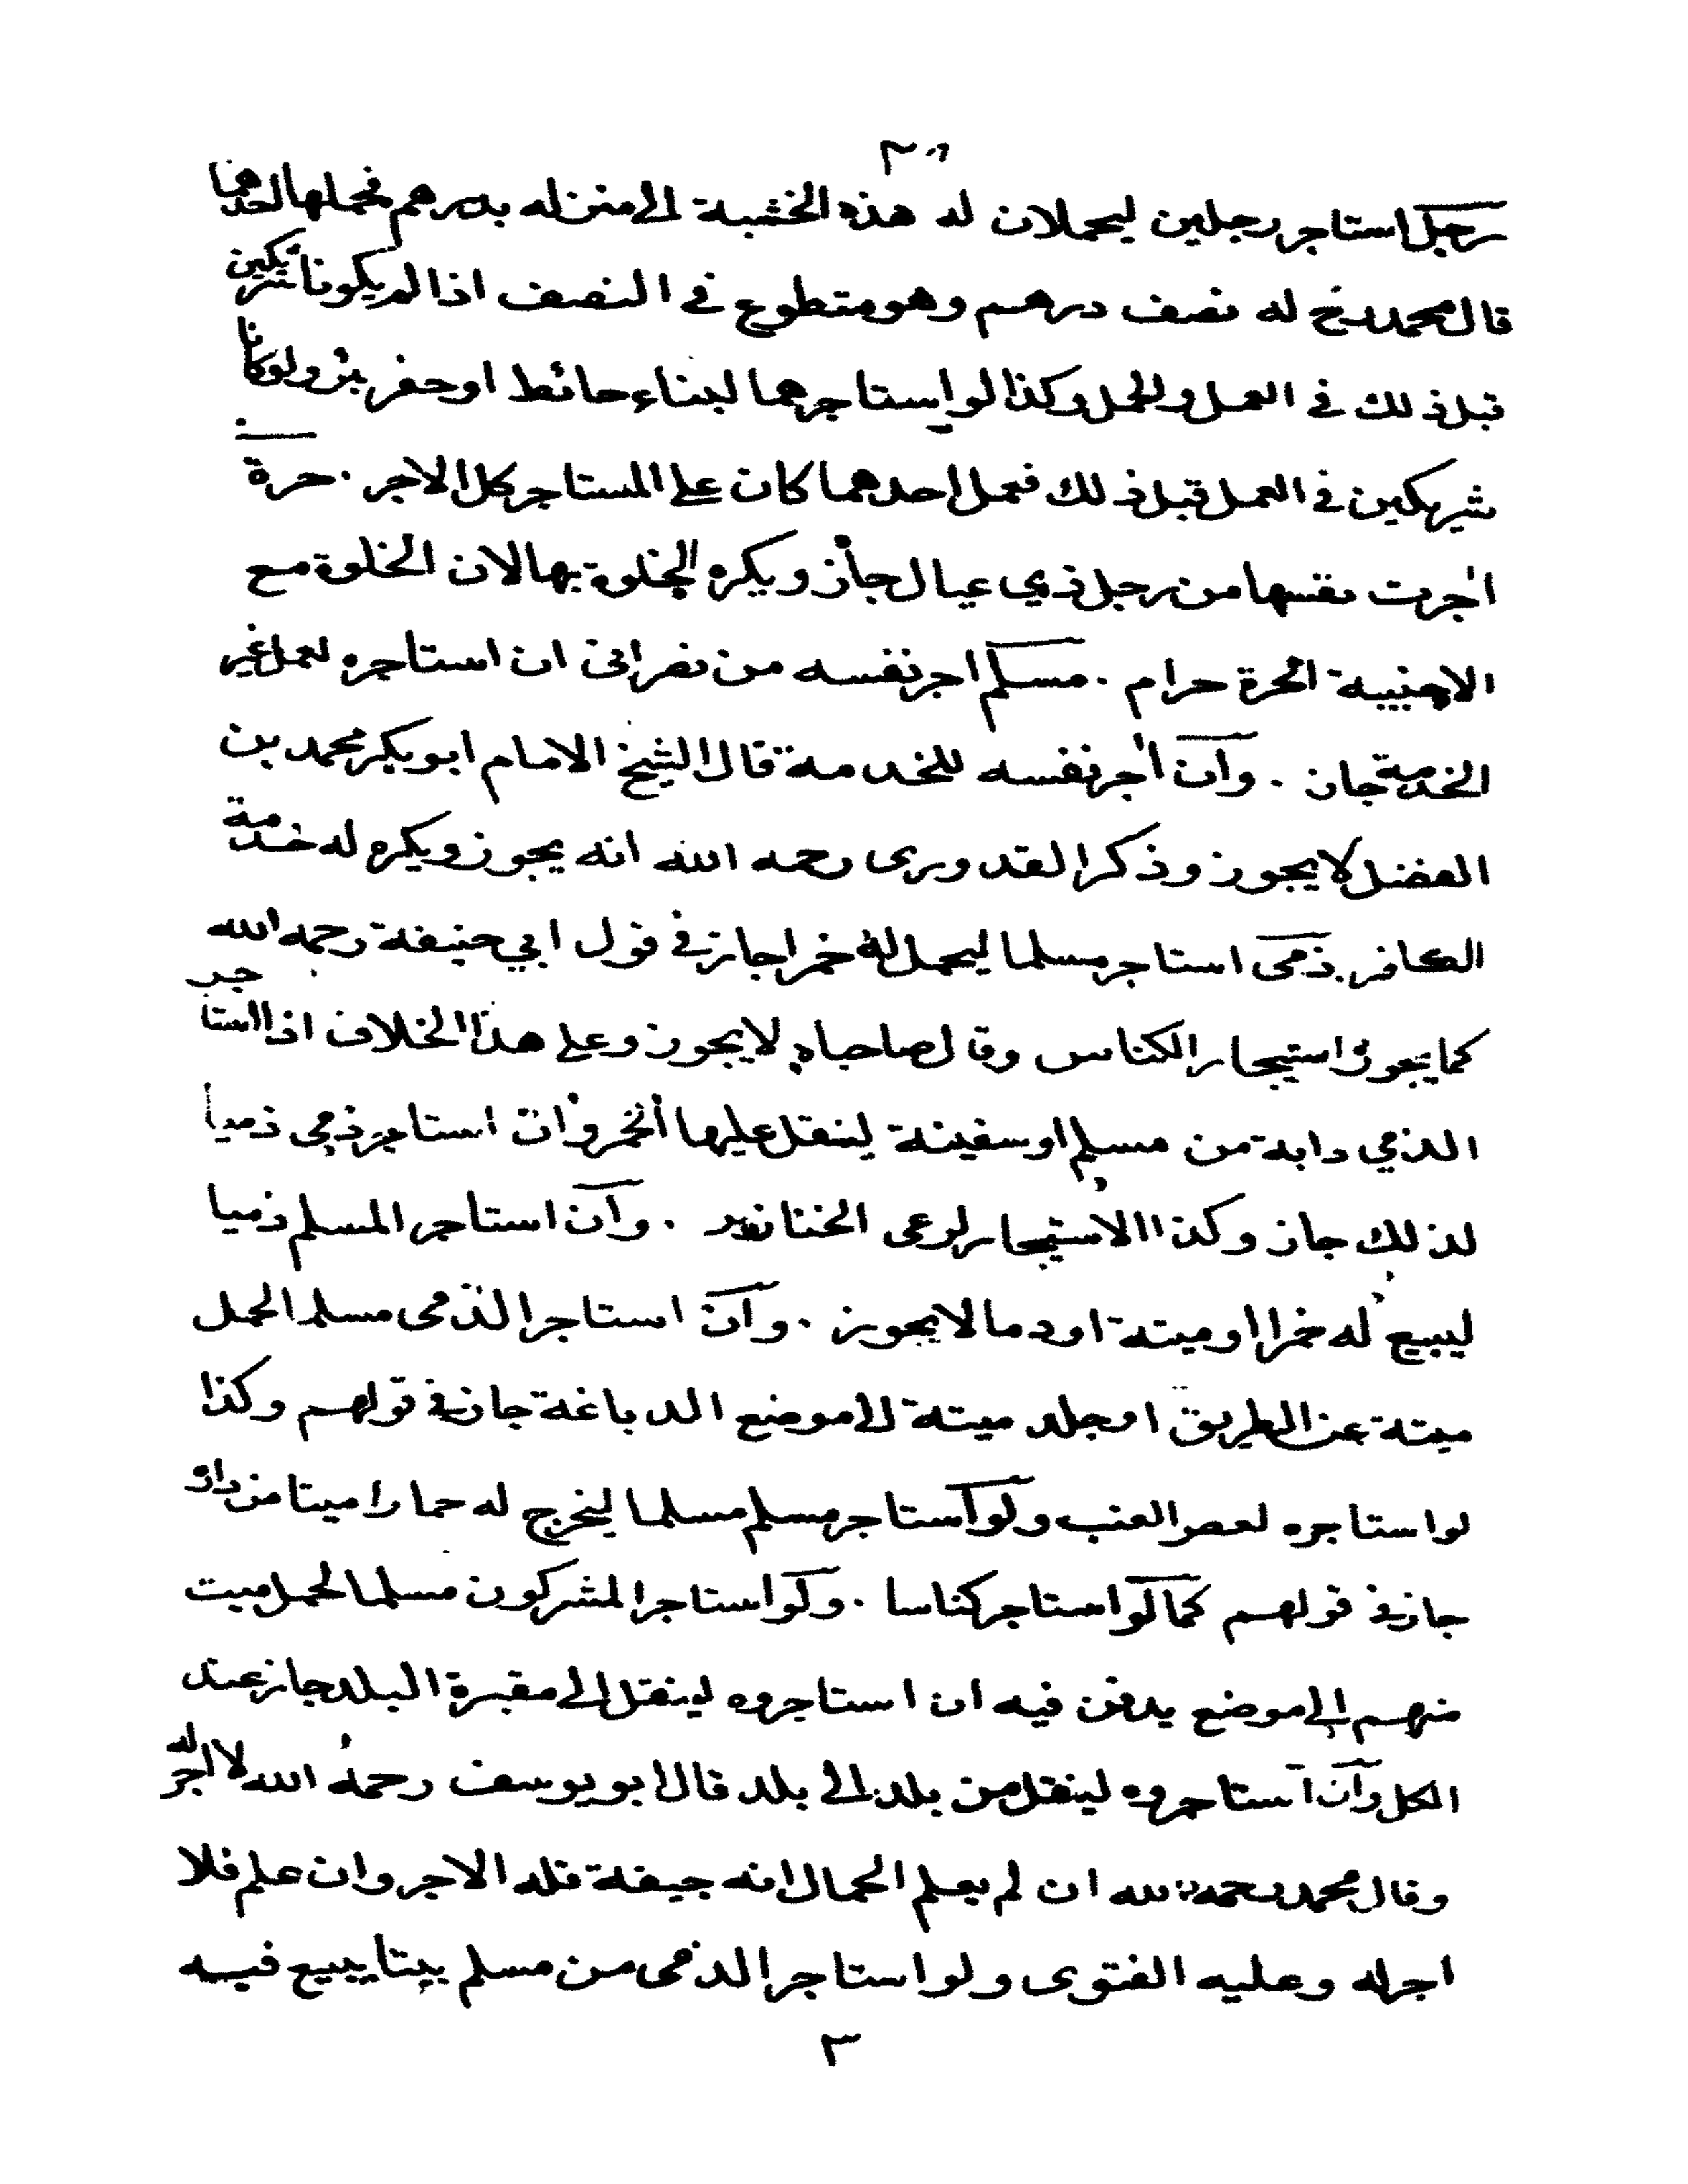 رجل استاجر رجلين ليحملان له هذه الخشبة الى منزله بدرهم فحملها احدهما
قال محمد رح له نصف درهم وهو متطوع في النصف اذا لم يكونا شريكين
قبل ذلك في العمل والحمل وكذا لو استاجرهما لبناء حائط او حفر بئر ولو كانا
شريكين في العمل قبل ذلك فعمل احدهما كان على المستاجر كل الاجر . حرة
اجرت نفسها من رجل ذي عيال جاز ويكره الخلوة بها لان الخلوة مع
الاجنبية الحرة حرام . مسلم اجر نفسه من نصرانى ان استاجره لعمل غير
الخدمة جاز . وان اجر نفسه للخدمة قال الشيخ الامام ابو بكر محمد بن
الفضل لا يجوز وذكر القدورى رحمه الله انه يجوز ويكره له خدمة
الكافر . ذمى استاجر مسلما ليحمل له خمرا جاز في قول ابي حنيفة رحمه الله
كما يجوز استيجار الكناس وقال صاحباه لا يجوز وعلى هذا الخلاف اذا استاجر
الذمي دابة من مسلم او سفينة لينقل عليها الخمر وان استاجر ذمي ذميا
لذلك جاز وكذا الاستيجار لرعى الخنازير . وان استاجر المسلم ذميا
ليبيع له خمرا او ميتة او دما لا يجوز . وان استاجر الذمى مسلما لحمل
ميتة عن الطريق او جلد ميتة الى موضع الدباغة جاز في قولهم وكذا
لو استاجره لعصر العنب ولو استاجر مسلم مسلما ليخرج له حمارا ميتا من داره
جاز في قولهم كما لو استاجر كناسا . ولو استاجر المشركون مسلما لحمل ميت
منهم الى موضع يدفن فيه ان استاجروه لينقل الى مقبرة البلد جاز عند
الكل وان استاجروه لينقل من بلد الى بلد قال ابو يوسف رحمه الله لا اجر له
وقال محمد رحمه الله ان لم يعلم الحمال انه جيفة فله الاجر وان علم فلا
اجر له وعليه الفتوى ولو استاجر الذمى من مسلم بيتا يبيع فيه
٣